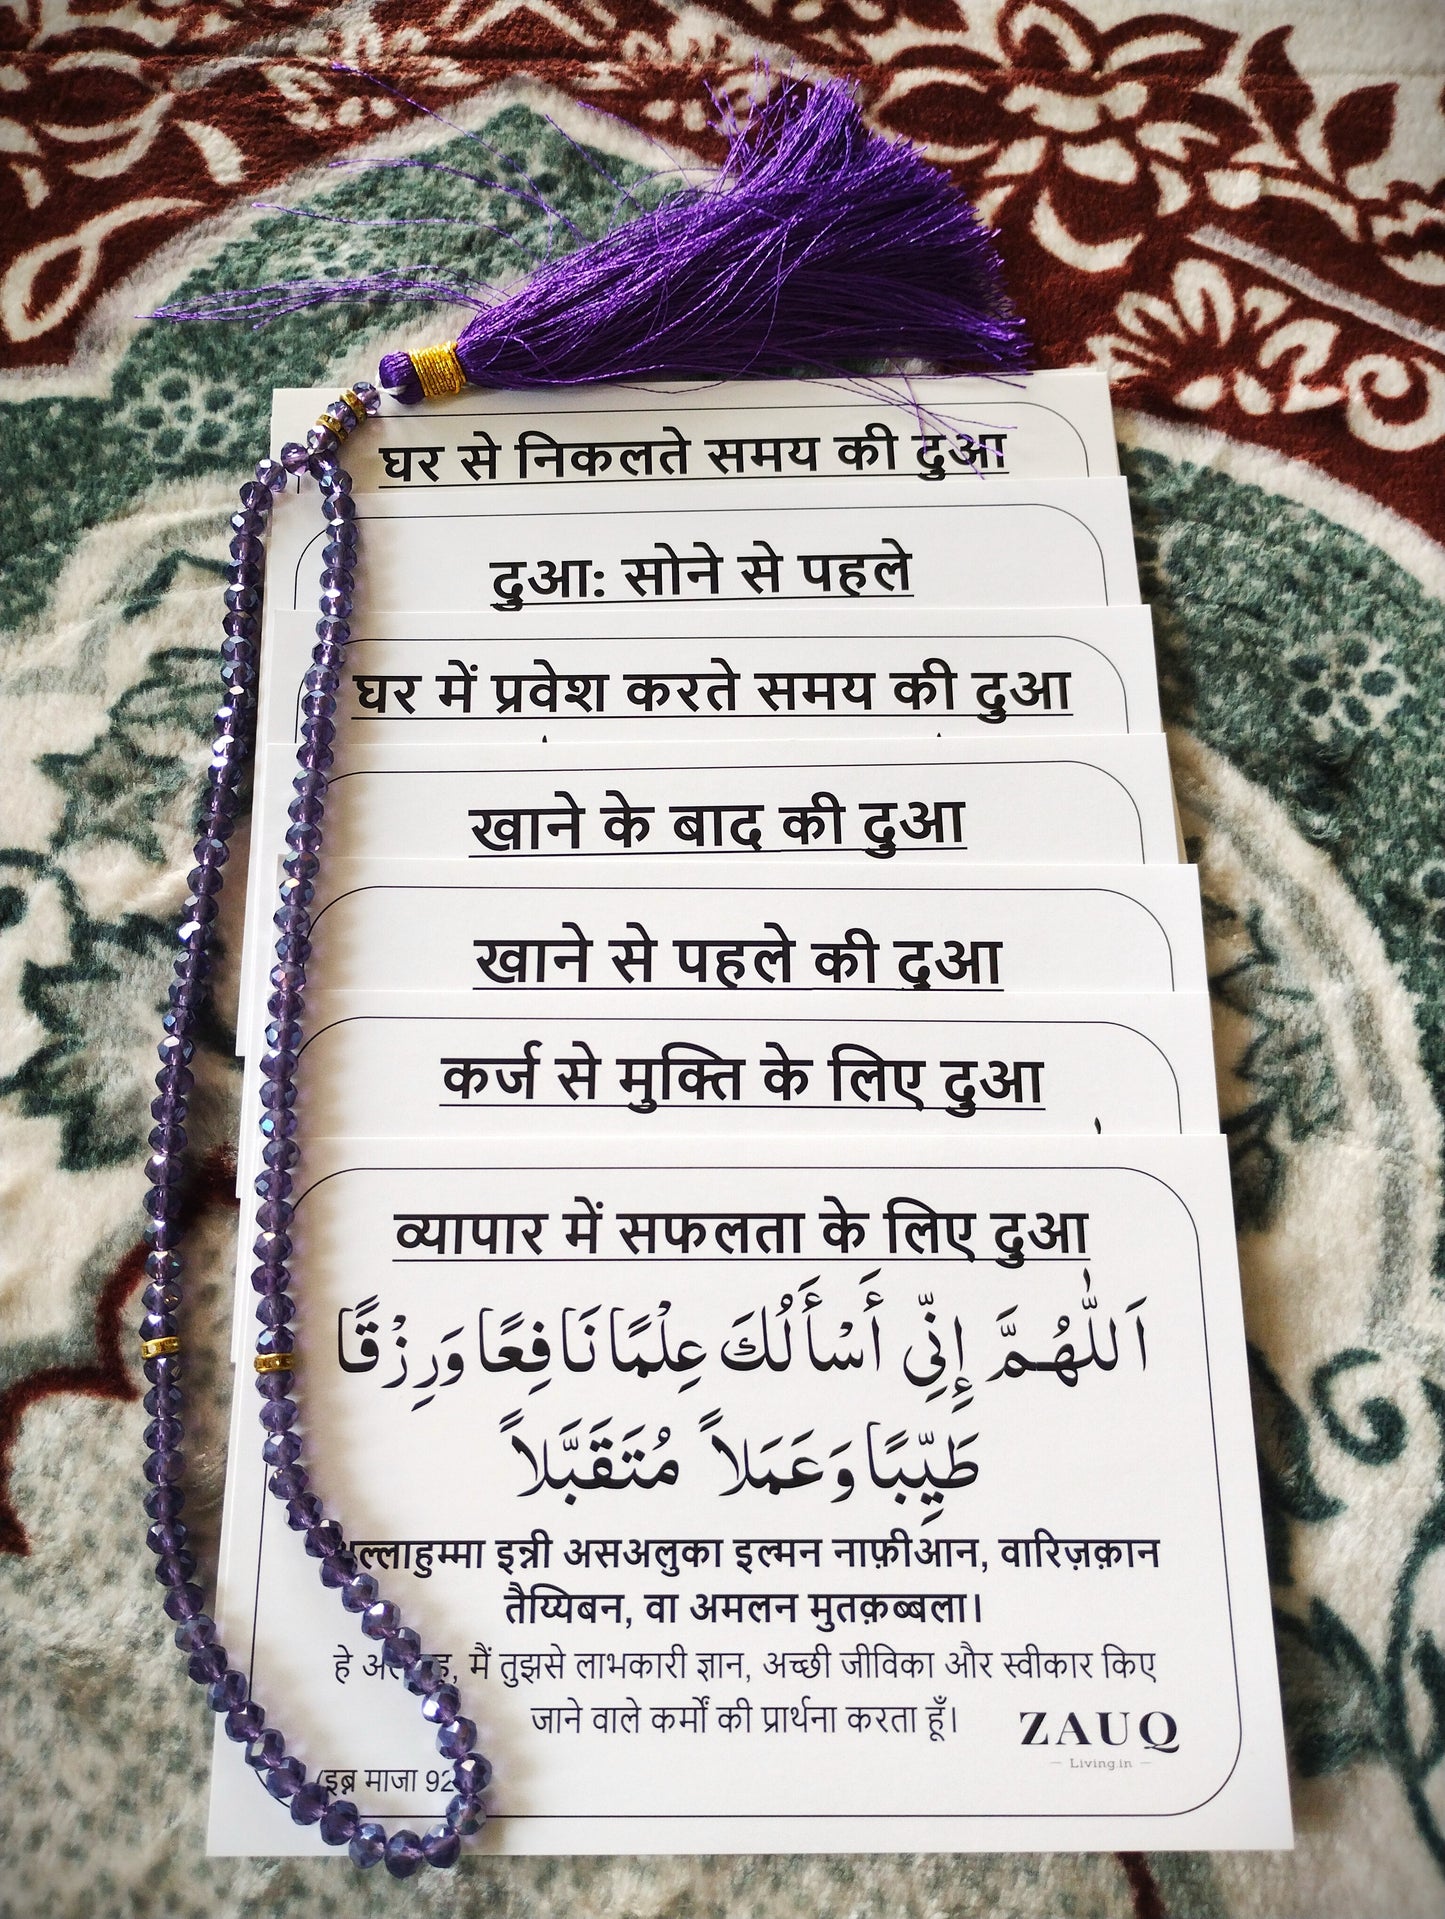 घर से निकलते समय की दुआ
दुआ: सोने से पहले
घर में प्रवेश करते समय की दुआ
खाने के बाद की दुआ
खाने से पहले की दुआ
कर्ज से मुक्ति के लिए दुआ
व्यापार में सफलता के लिए दुआ
اَللّٰهُمَّ إِنِّي أَسْأَلُكَ عِلْمًا نَافِعًا وَرِزْقًا
طَيِّبًا وَعَمَلاً مُتَقَبَّلاً
इन्नी असअलुका इल्मन नाफ़ीआन, वारिज़क़ान
तैय्यिबन, वा अमलन मुतक़ब्बला।
हे मैं तुझसे लाभकारी ज्ञान, अच्छी जीविका और स्वीकार किए
जाने वाले कर्मों की प्रार्थना करता हूँ।
ZAUQ
Living.in
(इब्न माजा